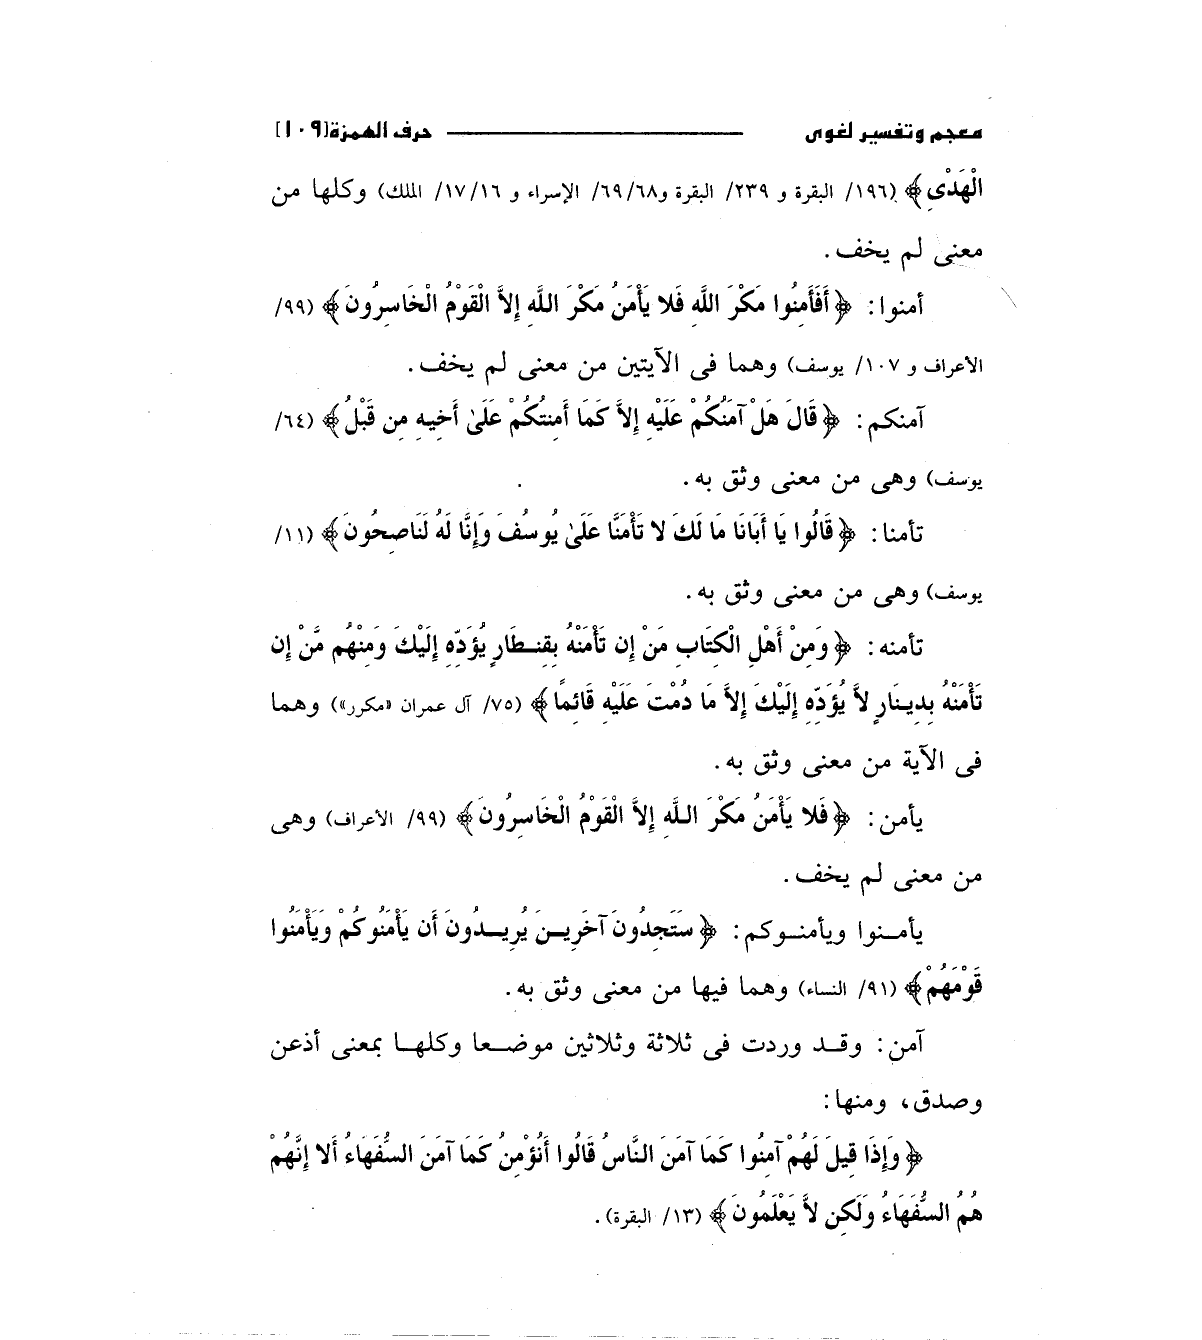 معجم وتفسير لغوى ــــــــــــــــــــ حرف الهمزة [١٠٩]
الْهَدْىِ﴾ (١٩٦/ البقرة و ٢٣٩/ البقرة و٦٩/٦٨/ الإسراء و ١٧/١٦/ الملك) وكلها من
معنى لم يخف.
أمنوا: ﴿أَفَأَمِنُوا مَكْرَ اللَّهِ فَلا يَأْمَنُ مَكْرَ اللَّهِ إِلاَّ الْقَوْمُ الْخَاسِرُونَ﴾ (٩٩/
الأعراف و ١٠٧/ يوسف) وهما فى الآيتين من معنى لم يخف.
آمنكم: ﴿قَالَ هَلْ آمَنُكُمْ عَلَيْهِ إِلاَّ كَمَا أَمِنتُكُمْ عَلَىٰ أَخِيهِ مِن قَبْلُ﴾ (٦٤/
يوسف) وهى من معنى وثق به.
تأمنا: ﴿قَالُوا يَا أَبَانَا مَا لَكَ لا تَأْمَنَّا عَلَىٰ يُوسُفَ وَإِنَّا لَهُ لَنَاصِحُونَ﴾ (١١/
يوسف) وهى من معنى وثق به.
تأمنه: ﴿وَمِنْ أَهْلِ الْكِتَابِ مَنْ إِن تَأْمَنْهُ بِقِنطَارٍ يُؤَدِّهِ إِلَيْكَ وَمِنْهُم مَّنْ إِن
تَأْمَنْهُ بِدِينَارٍ لاَّ يُؤَدِّهِ إِلَيْكَ إِلاَّ مَا دُمْتَ عَلَيْهِ قَائِمًا﴾ (٧٥/ آل عمران «مكرر») وهما
فى الآية من معنى وثق به.
يأمن: ﴿فَلا يَأْمَنُ مَكْرَ اللَّهِ إِلاَّ الْقَوْمُ الْخَاسِرُونَ﴾ (٩٩/ الأعراف) وهى
من معنى لم يخف.
يأمنوا ويأمنوكم: ﴿سَتَجِدُونَ آخَرِينَ يُرِيدُونَ أَن يَأْمَنُوكُمْ وَيَأْمَنُوا
قَوْمَهُمْ﴾ (٩١/ النساء) وهما فيها من معنى وثق به.
آمن: وقد وردت فى ثلاثة وثلاثين موضعا وكلها بمعنى أذعن
وصدق، ومنها:
﴿وَإِذَا قِيلَ لَهُمْ آمِنُوا كَمَا آمَنَ النَّاسُ قَالُوا أَنُؤْمِنُ كَمَا آمَنَ السُّفَهَاءُ أَلا إِنَّهُمْ
هُمُ السُّفَهَاءُ وَلَكِن لاَّ يَعْلَمُونَ﴾ (١٣/ البقرة).